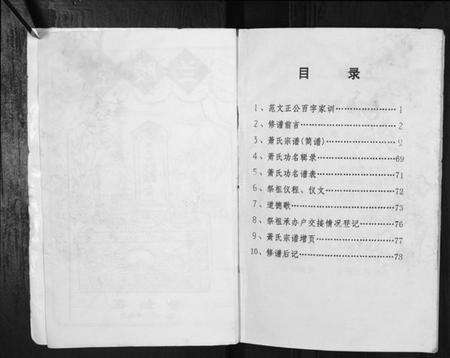 目 录
1、范文正公百字家训………………1
2、修谱前言………………2
3、萧氏宗谱(简谱)………………9
4、萧氏功名辑录………………69
5、萧氏功名谱表………………71
6、祭祖仪程、仪文………………72
7、道德歌………………73
8、祭祖承办户交接情况登记………………76
9、萧氏宗谱增页………………77
10、修谱后记………………78